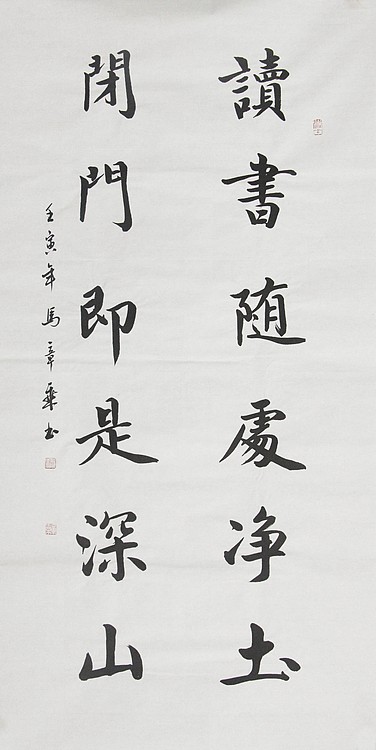 讀書随處净土
閉門即是深山
壬寅年馬章乘书